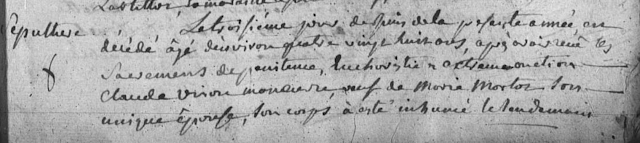 Sépulture Le troisieme jour de Juin de la presente année est
décédé âgé denviron quatre vingt huit ans, après avoir reçû les
Sacrements de penitence, Euchoristie et extremeonction
Claude Virion manœuvre, veuf de Marie Martos son
unique épouse, son corps à esté inhumé le lendemain